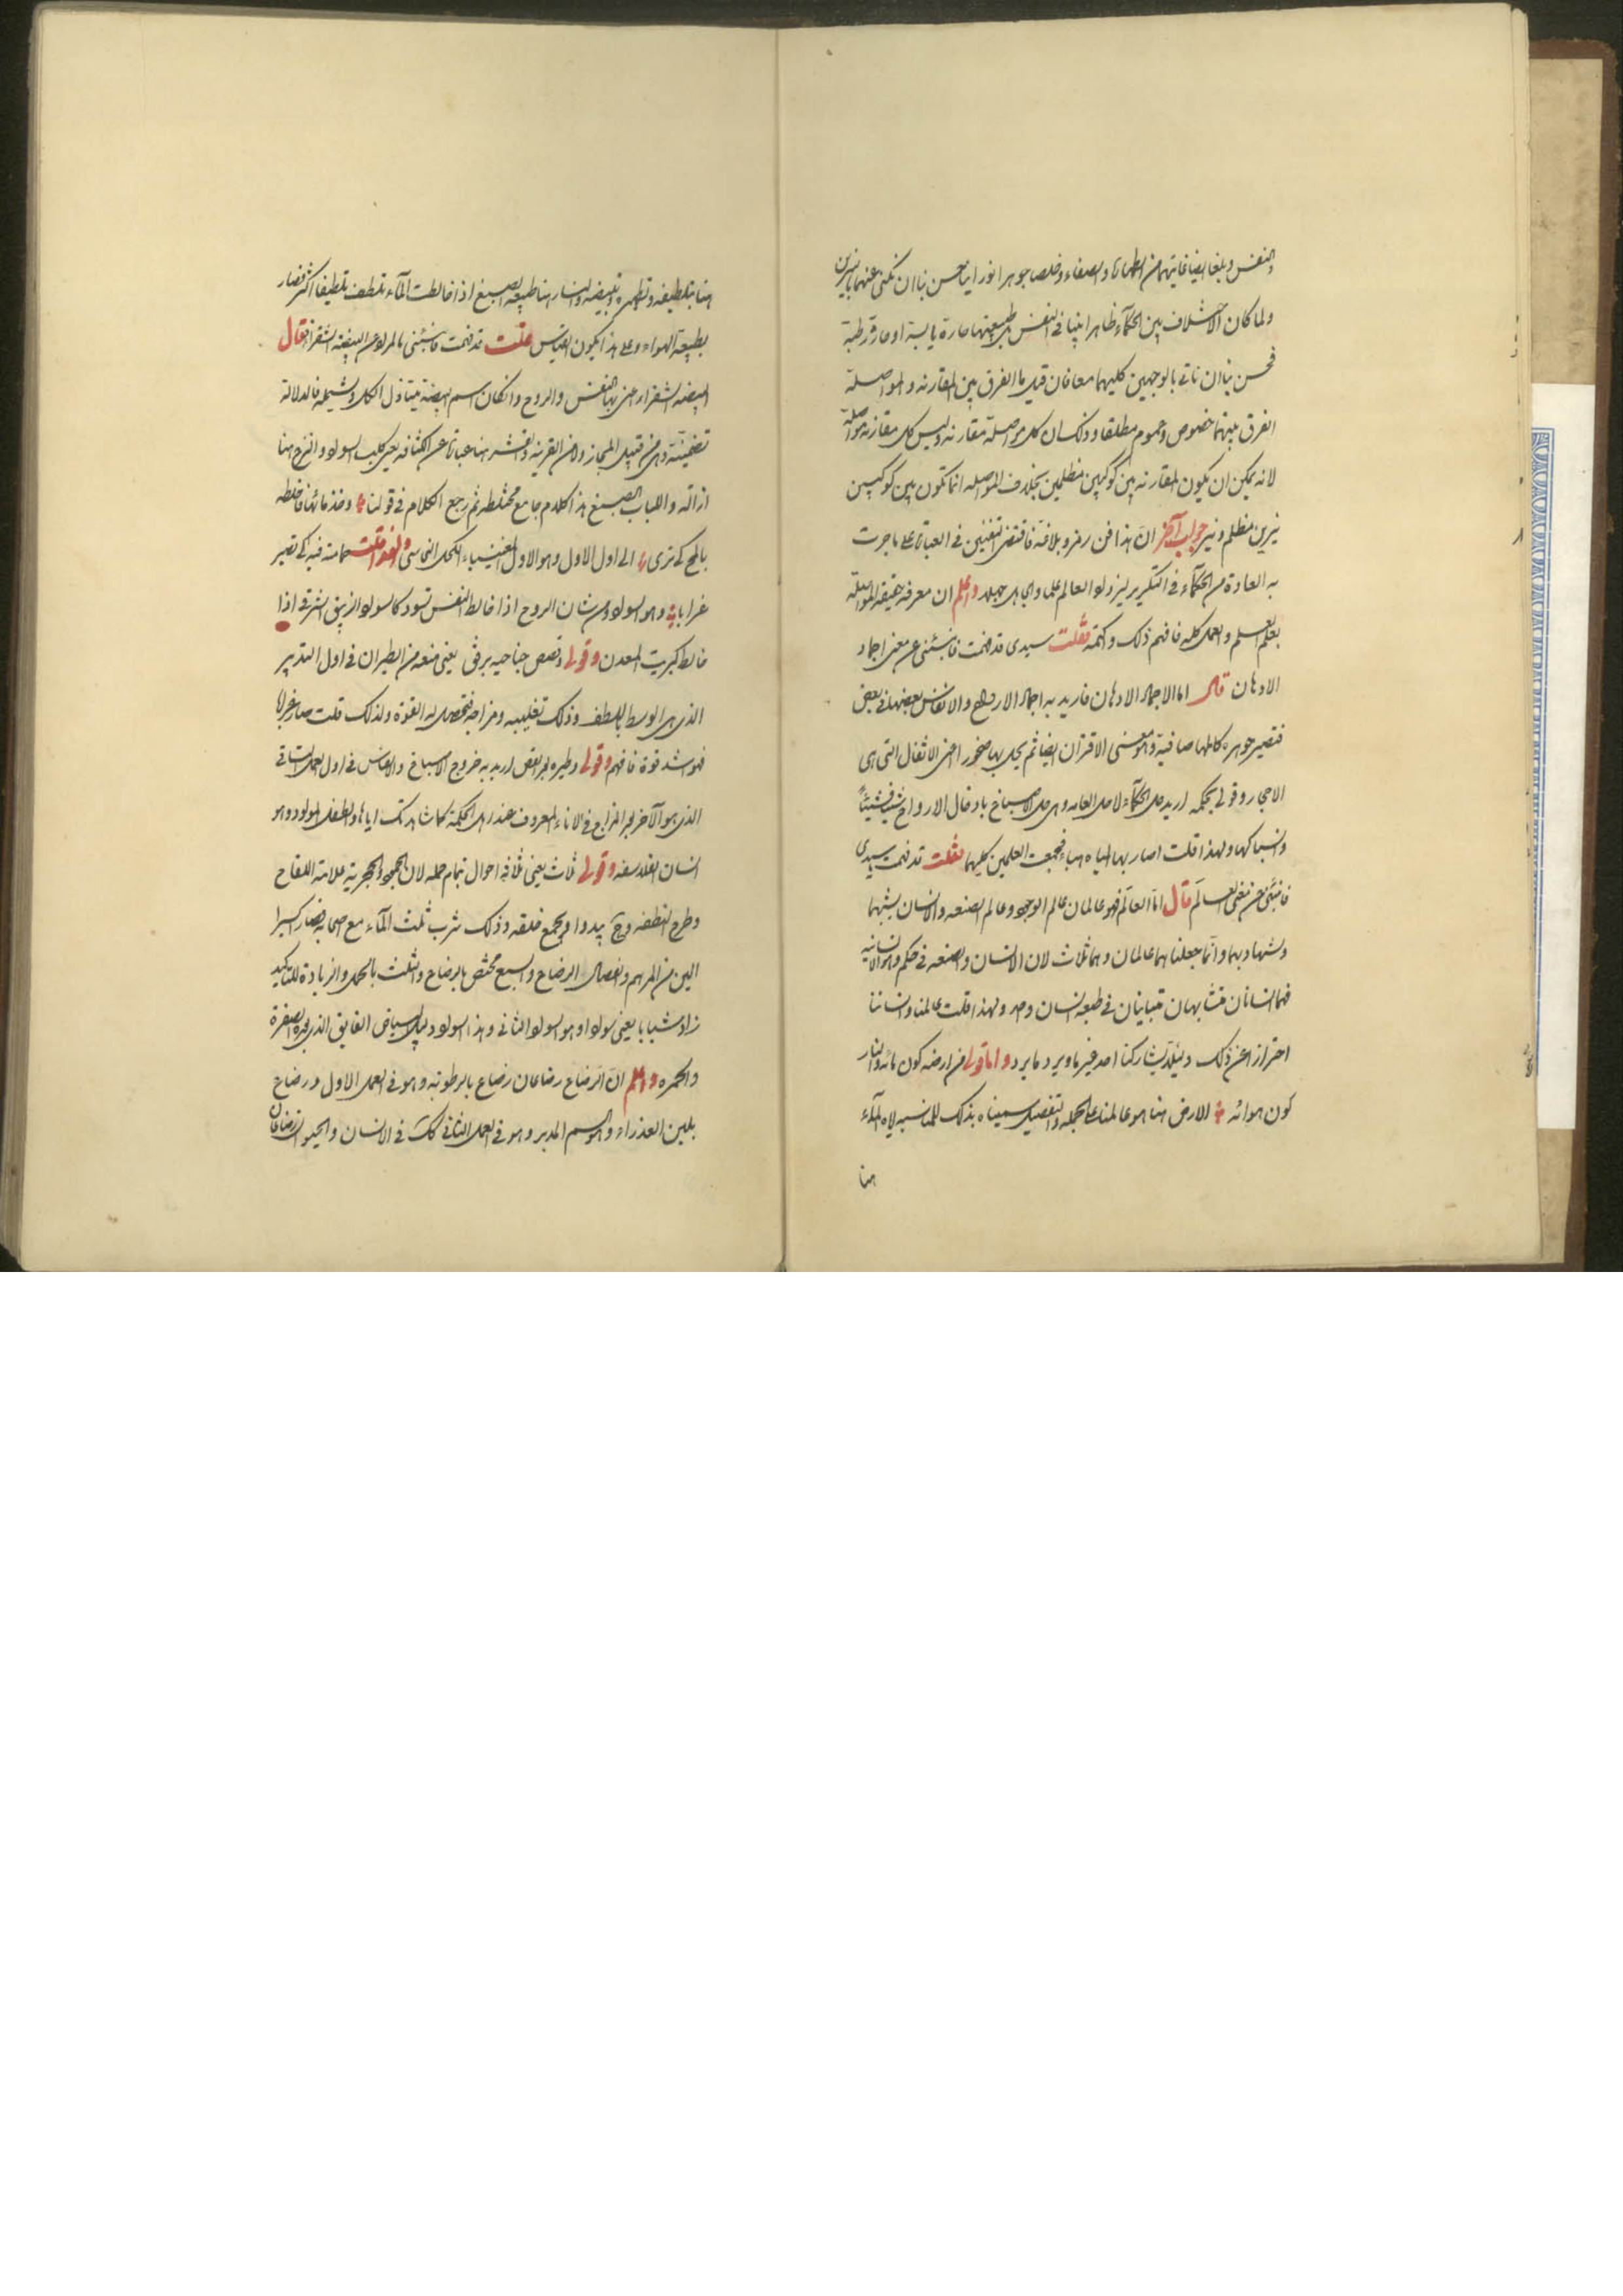 والنفس وبلغا ايضا غايتهما من الطهارة والصفاء وخلصا جوهرا نورانيا حسن بنا ان نكنى عنهما بالنيرين
ولما كان الاختلاف بين الحكمآء ظاهرا بينا فى النفس بل طبيعتها حارة يابسة او حارة رطبة
فحسن بنا ان ناتى بالوجهين كليهما معا فان قيل ما الفرق بين المقارنه والمواصلة
الفرق بينهما خصوص وعموم مطلقا وذلك ان كل مواصلة مقارنه وليس كل مقارنه مواصلة
لانه يمكن ان يكون المقارنه بين كوكبين مظلمين بخلاف المواصله انما تكون بين كوكبين
نيرين مظلم ونير جواب آخر ان هذا فن رمز وبلاغة فاقتضى التفنن فى العبارة على ما جرت
به العادة من الحكمآء فى التكرير ليزداد العالم علما والجاهل جهلا واعلم ان معرفة حقيقه المواصلة
بعلم العلم والعمل كله فافهم ذلك واكتمه فقلت سيدى قد فهمت فانبئنى عن معنى اجماد
الادهان قال اما الاجماد الادهان فاريد به اجماد الارواح والانفاس بعضها فى بعض
فتصير جوهره كاملها صافية وهو معنى الاقتران ايضا ثم يحل بها صخور اعنى الاثفال التى هى
الاحجار وقولى بحكمه اريد حل الحكمآء لا حل العامه وهى حل الاصباغ بادخال الارواح شيئا فشيئا
وانسباكها ولهذا قلت اصار بها المياه هباء فجمعت العلمين كليهما فقلت قد فهمت يا سيدى
فانبئنى عن معنى العالم قال اما العالم فهو عالمان عالم الوجود وعالم الصنعه والانسان يشبهما
وشهادبهما وانما جعلناهما عالمان وهما ثلاث لان الانسان والصنعه فى حكم واحد الانسانيه
فهما انسانان متشابهان متباينان فى طبعه انسان واحد ولهذا قلت عالمنا وانساننا
احترازا عن ذلك وليلا يشاركنا احد غيرنا ويرد ما يرد واما قولى من ارضه كون مائه والنار
كون هوائه الارض هنا هو عالمنا على الجمله والتفصيل سميناه بذلك للمناسبه لان المآء
هنا
هنا بتلطيفه وتطهيره وتبييضه والنار هنا طبيعة الصبغ اذا خالطت المآء تلطف تلطيفا اكثر فصار
بطبيعة الهواء وعلى هذا يكون القياس قلت قد فهمت فانبئنى بالمراد عن البيضه الشقراء فقال
البيضه الشقراء اعنى بها النفس والروح وان كان اسم البيضة يتناول الكل ويشمله فالدلالة
تضمنيته وهى من قبيل المجاز ولابد من القرينه والقشر هنا عبارة عن الكثافه يعنى كليب السواد والنزع هنا
ازالته واللباب الصبغ هذا كلام جامع مختلطه ثم رجع الكلام فى قولنا وخذ مائها فاخلطه
بالمح كى ترى الى اول الاول وهو الاول الغينيياء الكحل النحاسى ولهذا قلت حمامته فيه كى تصير
غرابا وهو السواد ومن شان الروح اذا خالط النفس تسود كما سواد الزيبق الشرقى اذا
خالط كبريت المعدن وقولى وقصص جناحيه برفق يعنى منعه من الطيران فى اول التدبير
الذى هى الوسط باللطف وذلك تغليبه ومزاجه فتحصل له القوة ولذلك قلت صار غرابا
فهو اشد قوة فافهم وقولى وطيره بعد القص اريد به خروج الاصباغ والانفاس فى اول العمل الثانى
الذى هو الآخر بعد المزاج فى الاناء المعروف عند اهل الحكمة كما شاهدتك اياها والطفل المولود هو
انسان الفلاسفه وقولى ثلاث يعنى ثلاثه احوال تمام حمله لان الجمود والحجرية علامة اللقاح
وطرح النطفه وح يبدوا ويجمع خلقه وذلك شرب ثلث المآء مع صحابه فصار اكسيرا
الين من المرهم وانفصال الرضاع والسبع مختص بالرضاع والثلث بالحمل والزيادة للتاكيد
زاد شبابا يعنى سوادا وهو السواد الثانى وهذا السواد دليل البياض الفايق الذى بعده الصفرة
والحمره واعلم ان الرضاع رضاعان رضاع بالرطوبة وهو فى العمل الاول ورضاع
بلبن العذراء وهو السم المدبر وهو فى العمل الثانى كك فى الانسان والحيوان رضاعان